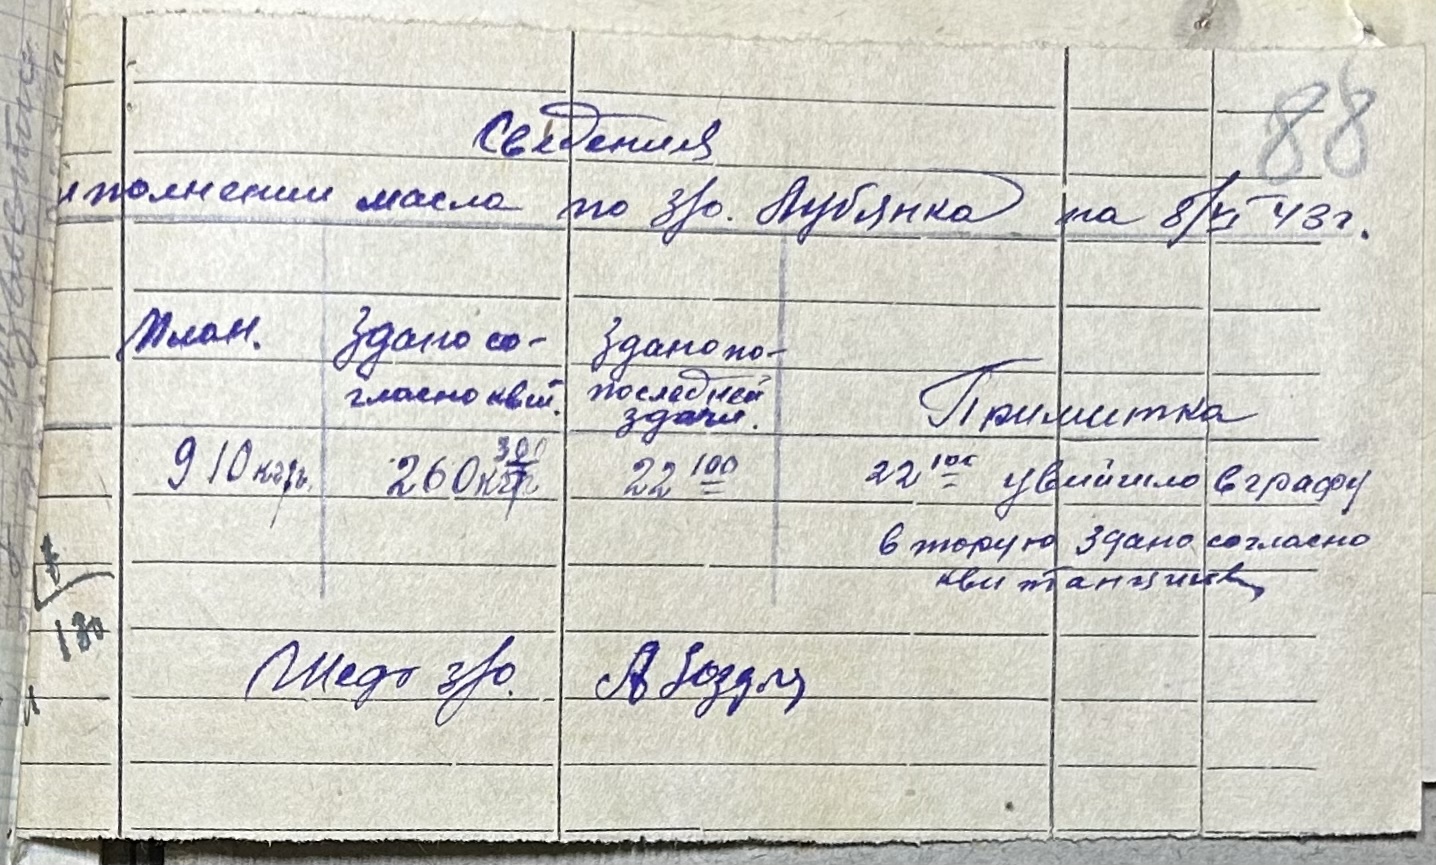 88
Сведения
иполнении масла по з/о. Лубянка на 8/VI 43г.
План. Здано со- Здано по-
гласно квит. последней
здачи. Примитка
910 кгр. 260 кгр 300 22 100 22 100 увийшло в графу
вторую здано согласно
квитанций
з/о. А
180